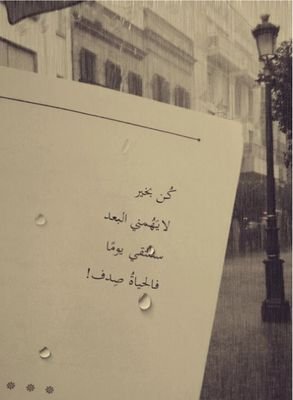 كُن بخير
لا يَهُمني البعد
سنلتقي يومًا
فالحياةُ صِدف!